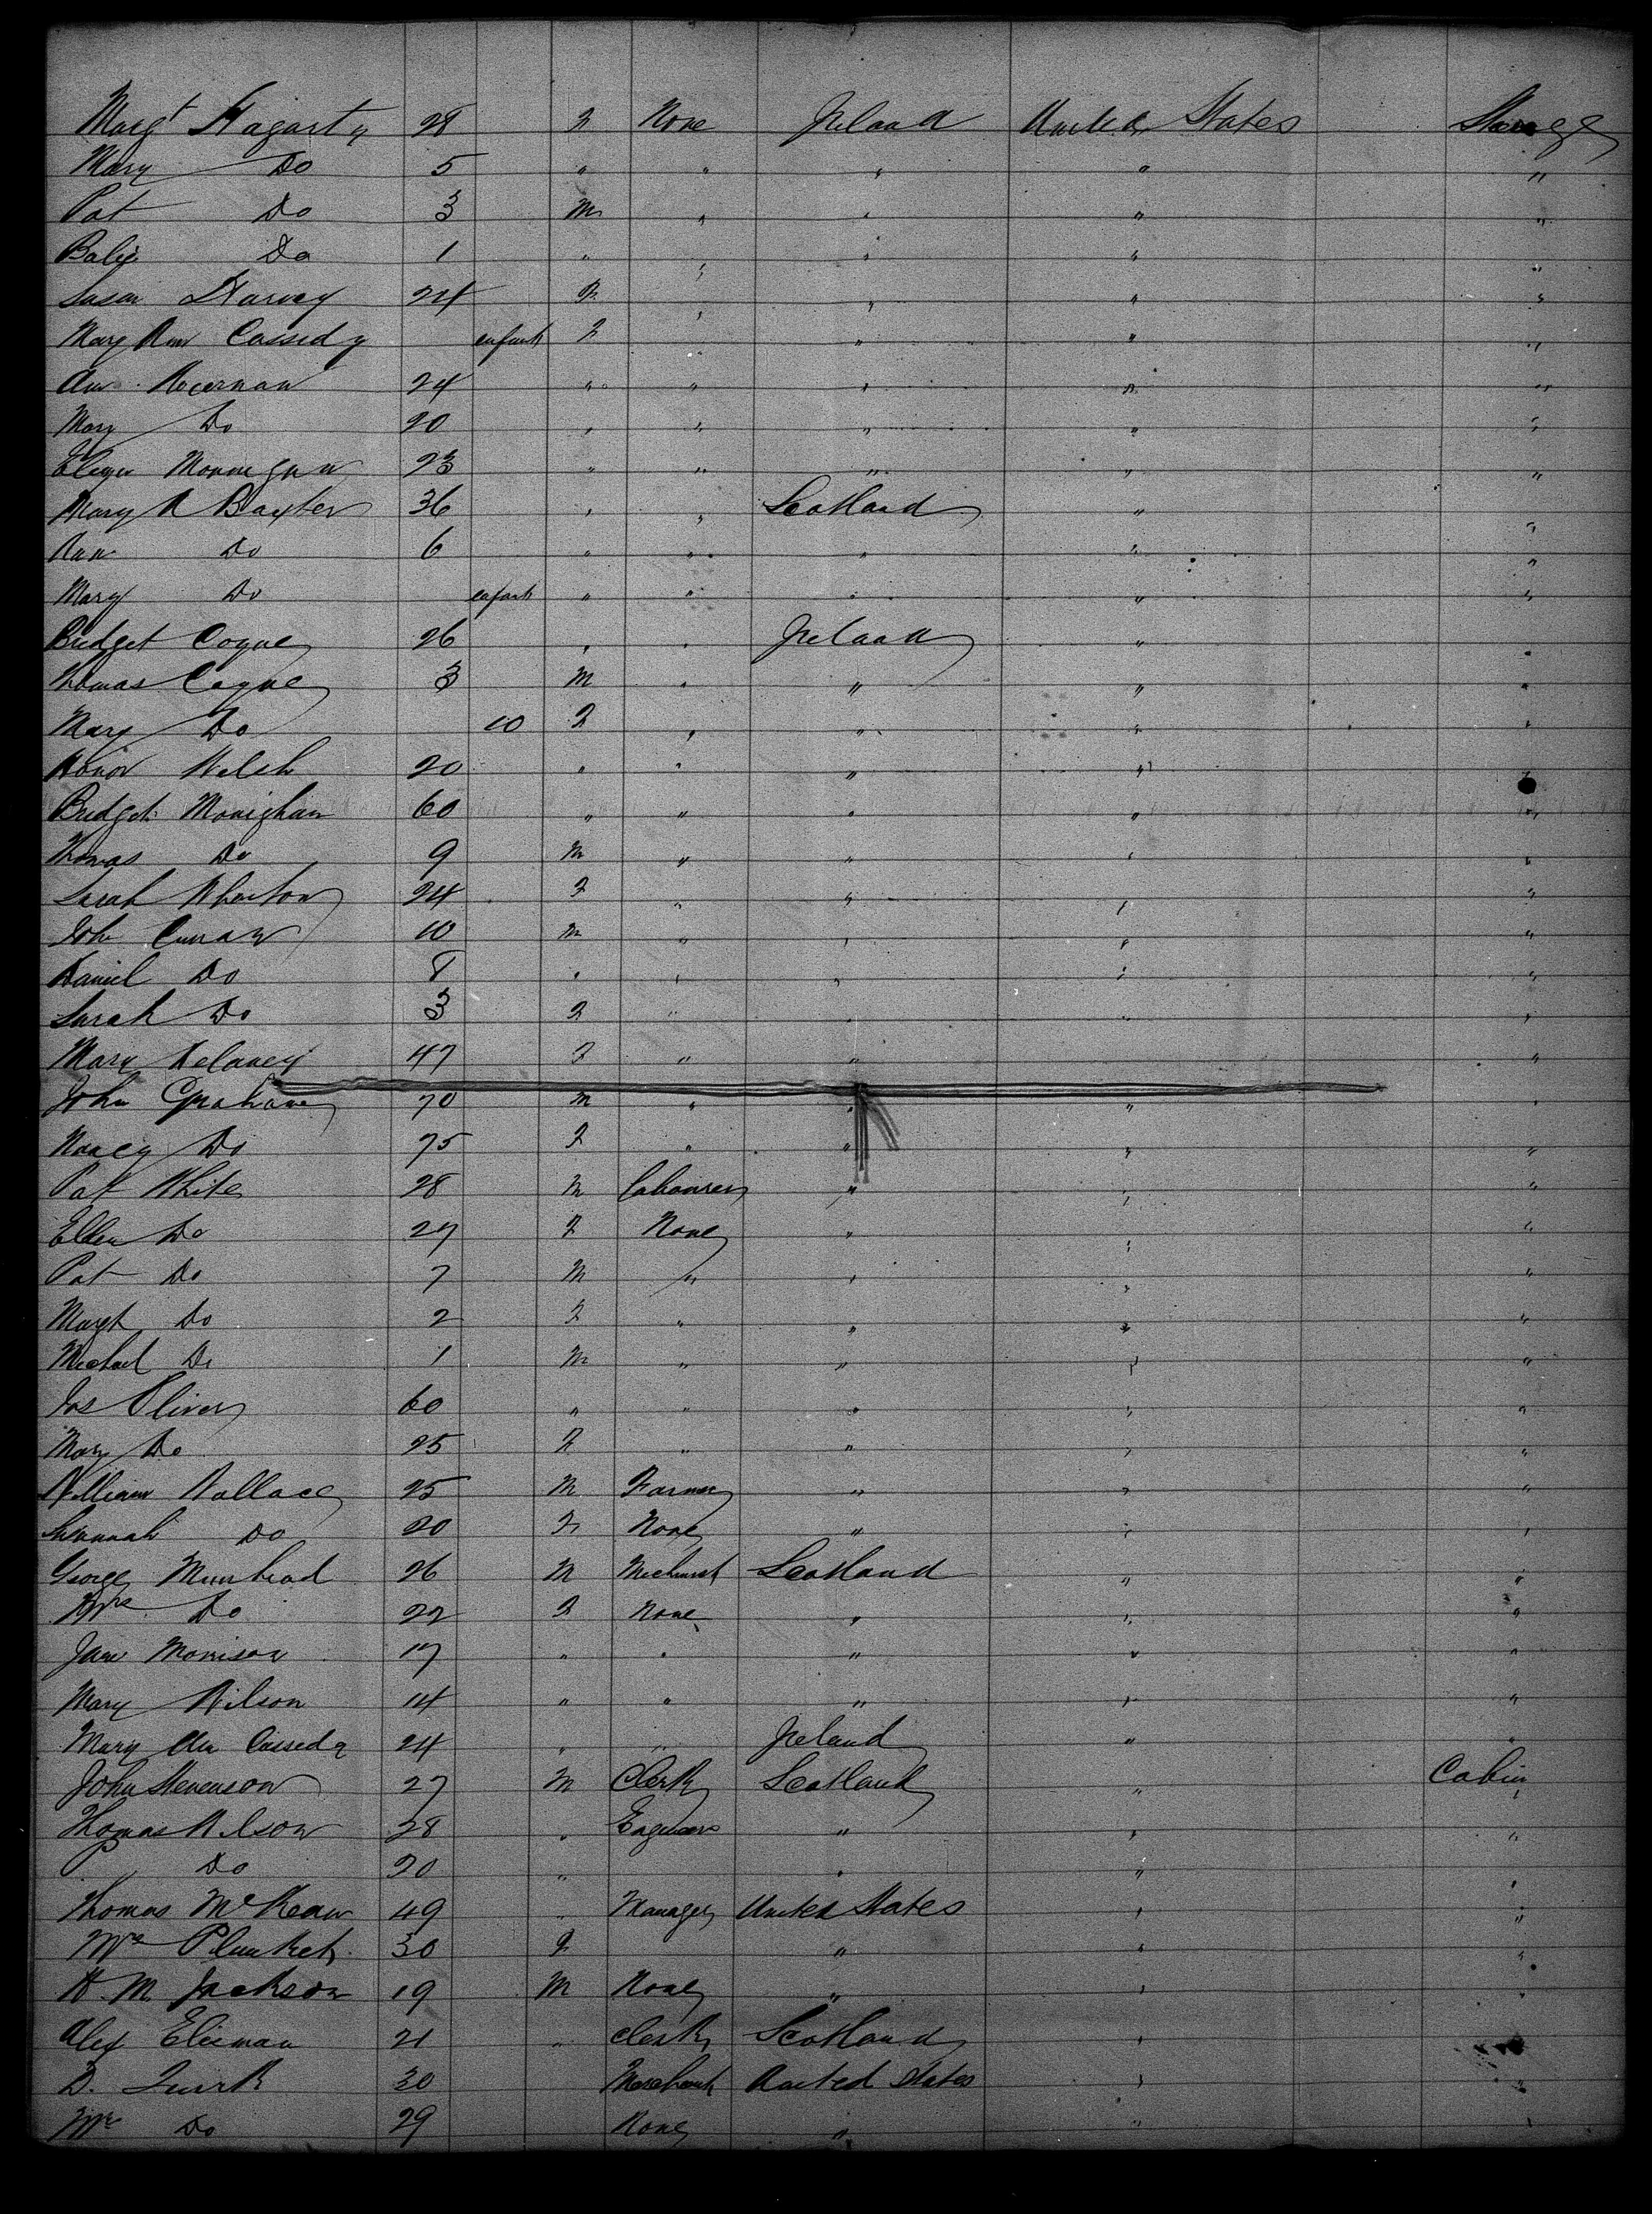 Margt Hagarty 28 F None Ireland United States Steerage
Mary Do 5 " " " " "
Pat Do 3 M " " " "
Do 1 " " " " "
Susan Harvey 24 F " " " "
Mary Ann Cassidy enfant F " " " "
Ann 24 " " " " "
Mary Do 20 " " " " "
23 " " " " "
Mary A Baxter 36 " " Scotland " "
Ann Do 6 " " " " "
Mary Do enfant " " " " "
Bridget Coyne 26 " " Ireland " "
Thomas Coyne 3 M " " " "
Mary Do 10 F " " " "
Honor Welsh 20 " " " " "
Bridget Monighan 60 " " " " "
Thomas Do 9 M " " " "
Sarah Wharton 24 F " " " "
John Curran 10 M " " " "
Daniel Do 8 " " " " "
Sarah Do 3 F " " " "
Mary Delaney 47 F " " " "
John Graham 70 M " " " "
Nancy Do 75 F " " " "
Pat White 28 M Labourer " " "
Ellen Do 27 F None " " "
Pat Do 7 M " " " "
Margt Do 2 F " " " "
Michael Do 1 M " " " "
Jas Oliver 60 " " " " "
Mary Do 25 F " " " "
William Wallace 25 M Farmer " " "
Susannah Do 20 F None " " "
George Muirhead 26 M Scotland " "
Mrs Do 22 F None " " "
Jane Morrison 17 " " " " "
Mary Wilson 14 " " " " "
Mary Ann Cassedy 24 " " Ireland " "
John Stevenson 27 M Clerk Scotland " Cabin
Thomas Wilson 28 " Engineer " " "
Do 20 " " " "
Thomas McKean 49 " Manager United States " "
Mrs Plunket 30 F " " "
H. M. Jackson 19 M None " " "
Alex 21 " Clerk Scotland "
D. Quirk 30 Merchant United States " "
Do 29 None " " "